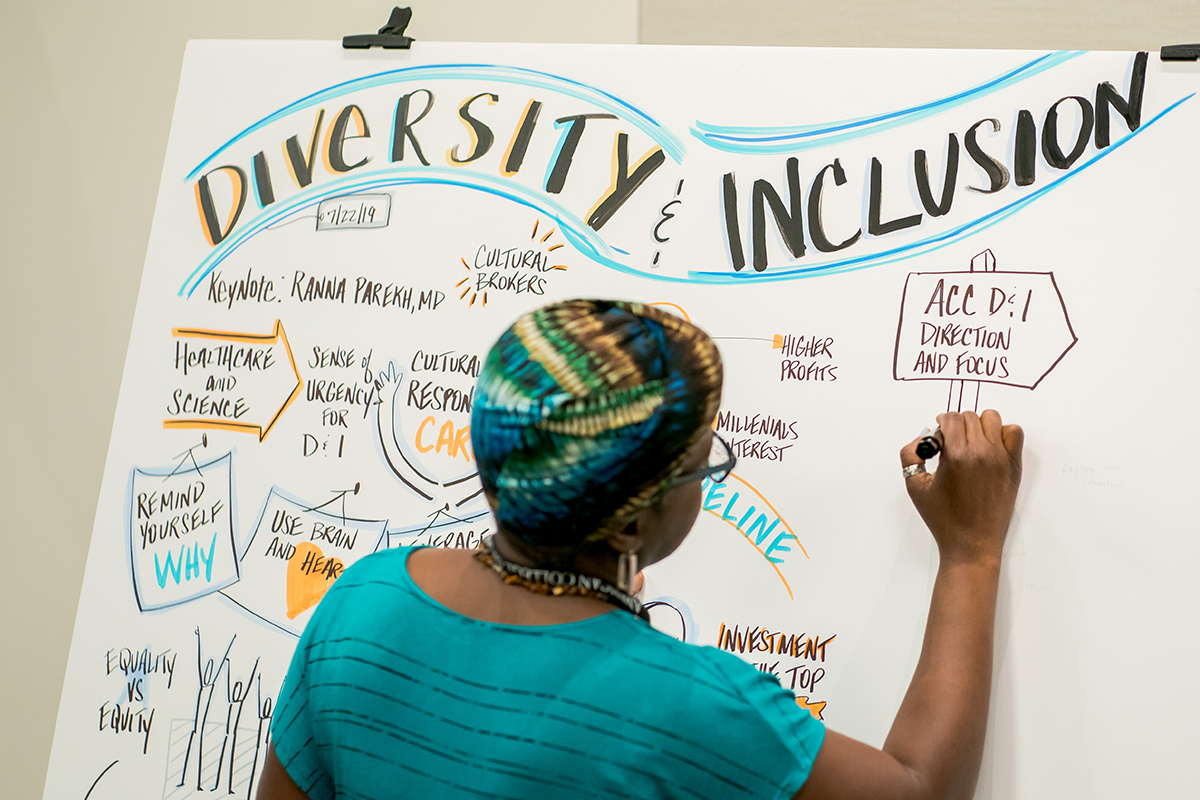 DIVERSITY & INCLUSION
7/22/19
Keynote: RANNA PAREKH, MD
CULTURAL
BROKERS
HEALTHCARE
AND
SCIENCE
SENSE of
URGENCY
FOR
D&I
CULTURAL
RESPON
CAR
HIGHER
PROFITS
MILLENIALS
ACC D&I
DIRECTION
AND FOCUS
REMIND
YOURSELF
WHY
USE BRAIN
AND HEAR
ELINE
EQUALITY
VS
EQUITY
INVESTMENT
TOP